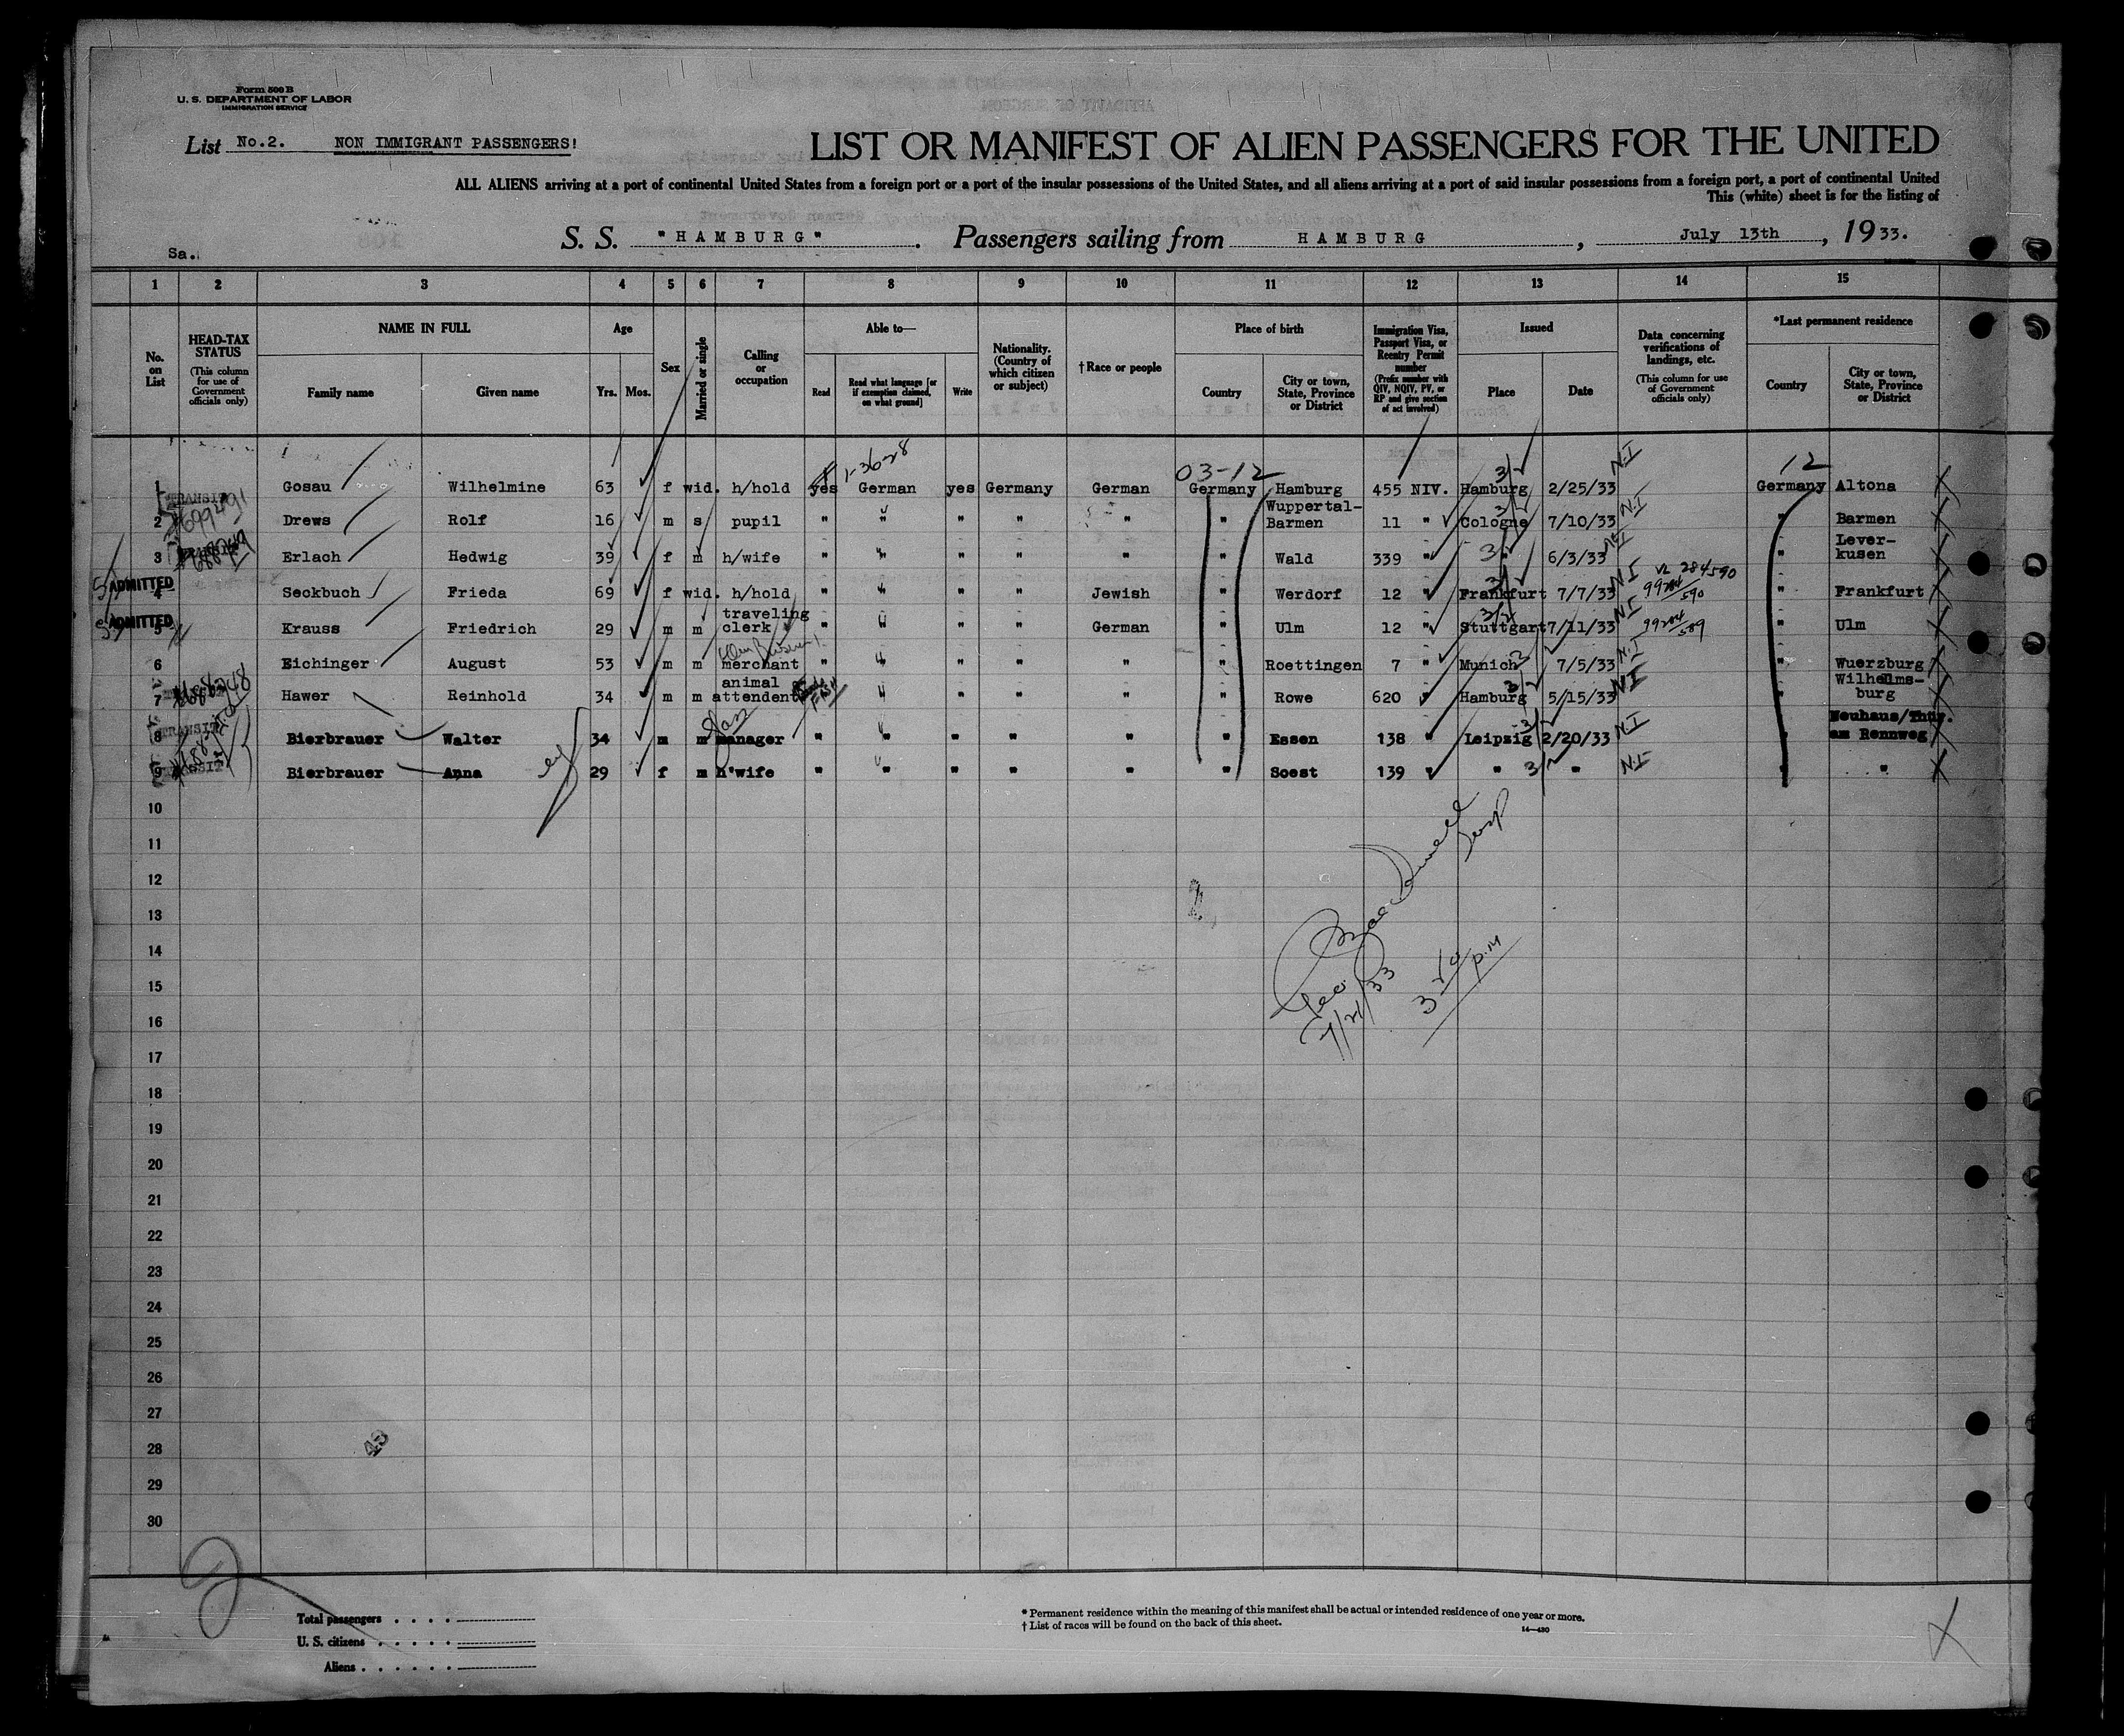 Form 500 B
U. S. DEPARTMENT OF LABOR
IMMIGRATION SERVICE
List No.2. NON IMMIGRANT PASSENGERS!
LIST OR MANIFEST OF ALIEN PASSENGERS FOR THE UNITED
ALL ALIENS arriving at a port of continental United States from a foreign port or a port of the insular possessions of the United States, and all aliens arriving at a port of said insular possessions from a foreign port, a port of continental United
This (white) sheet is for the listing of
Sa.
S. S. "HAMBURG". Passengers sailing from HAMBURG, July 13th, 1933.
1 2 3 4 5 6 7 8 9 10 11 12 13 14 15
No. on List
HEAD-TAX STATUS (This column for use of Government officials only)
NAME IN FULL
Family name Given name
Age
Yrs. Mos.
Sex
Married or single
Calling or occupation
Able to—
Read Read what language [or if exemption claimed, on what ground] Write
Nationality. (Country of which citizen or subject)
†Race or people
Place of birth
Country City or town, State, Province or District
Immigration Visa, Passport Visa, or Reentry Permit number (Prefix number with QIV, NQIV, PV, or RP and give section of act involved)
Issued
Place Date
Data concerning verifications of landings, etc. (This column for use of Government officials only)
*Last permanent residence
Country City or town, State, Province or District
1-3628 03-12 12
1 TRANSIT Gosau Wilhelmine 63 f wid. h/hold yes German yes Germany German Germany Hamburg 455 NIV. Hamburg 3/2 2/25/33 N.I Germany Altona
2 699491 Drews Rolf 16 m s pupil " " " " " " Wuppertal-Barmen 11 " Cologne 7/10/33 N.I " Barmen
3 Erlach Hedwig 39 f m h/wife " " " " " " Wald 339 " " 6/3/33 N.I " Lever-kusen
4 ADMITTED Seckbuch Frieda 69 f wid. h/hold " " " " Jewish " Werdorf 12 " Frankfurt 7/7/33 N.I VL 284590 99284/590 " Frankfurt
5 ADMITTED Krauss Friedrich 29 m m traveling clerk " " " " German " Ulm 12 " Stuttgart 7/11/33 N.I 99284/589 " Ulm
6 Eichinger August 53 m m merchant " " " " " " Roettingen 7 " Munich 7/5/33 N.I " Wuerzburg
7 Hawer Reinhold 34 m m animal attendent " " " " " Rowe 620 " Hamburg 5/15/33 N.I " Wilhelms-burg
8 TRANSIT Bierbrauer Walter 34 m m Glass manager " " " " " " Essen 138 " Leipzig 2/20/33 N.I Neuhaus/Thür. am Rennweg
9 TRANSIT Bierbrauer Anna 29 f m h'wife " " " " " " Soest 139 " " " N.I " "
10
11
12
13
14
15
16
17
18
19
20
21
22
23
24
25
26
27
28
29
30
7/21/33
3 10 p.m
43
2
Total passengers
U. S. citizens
Aliens
* Permanent residence within the meaning of this manifest shall be actual or intended residence of one year or more.
† List of races will be found on the back of this sheet.
14—430